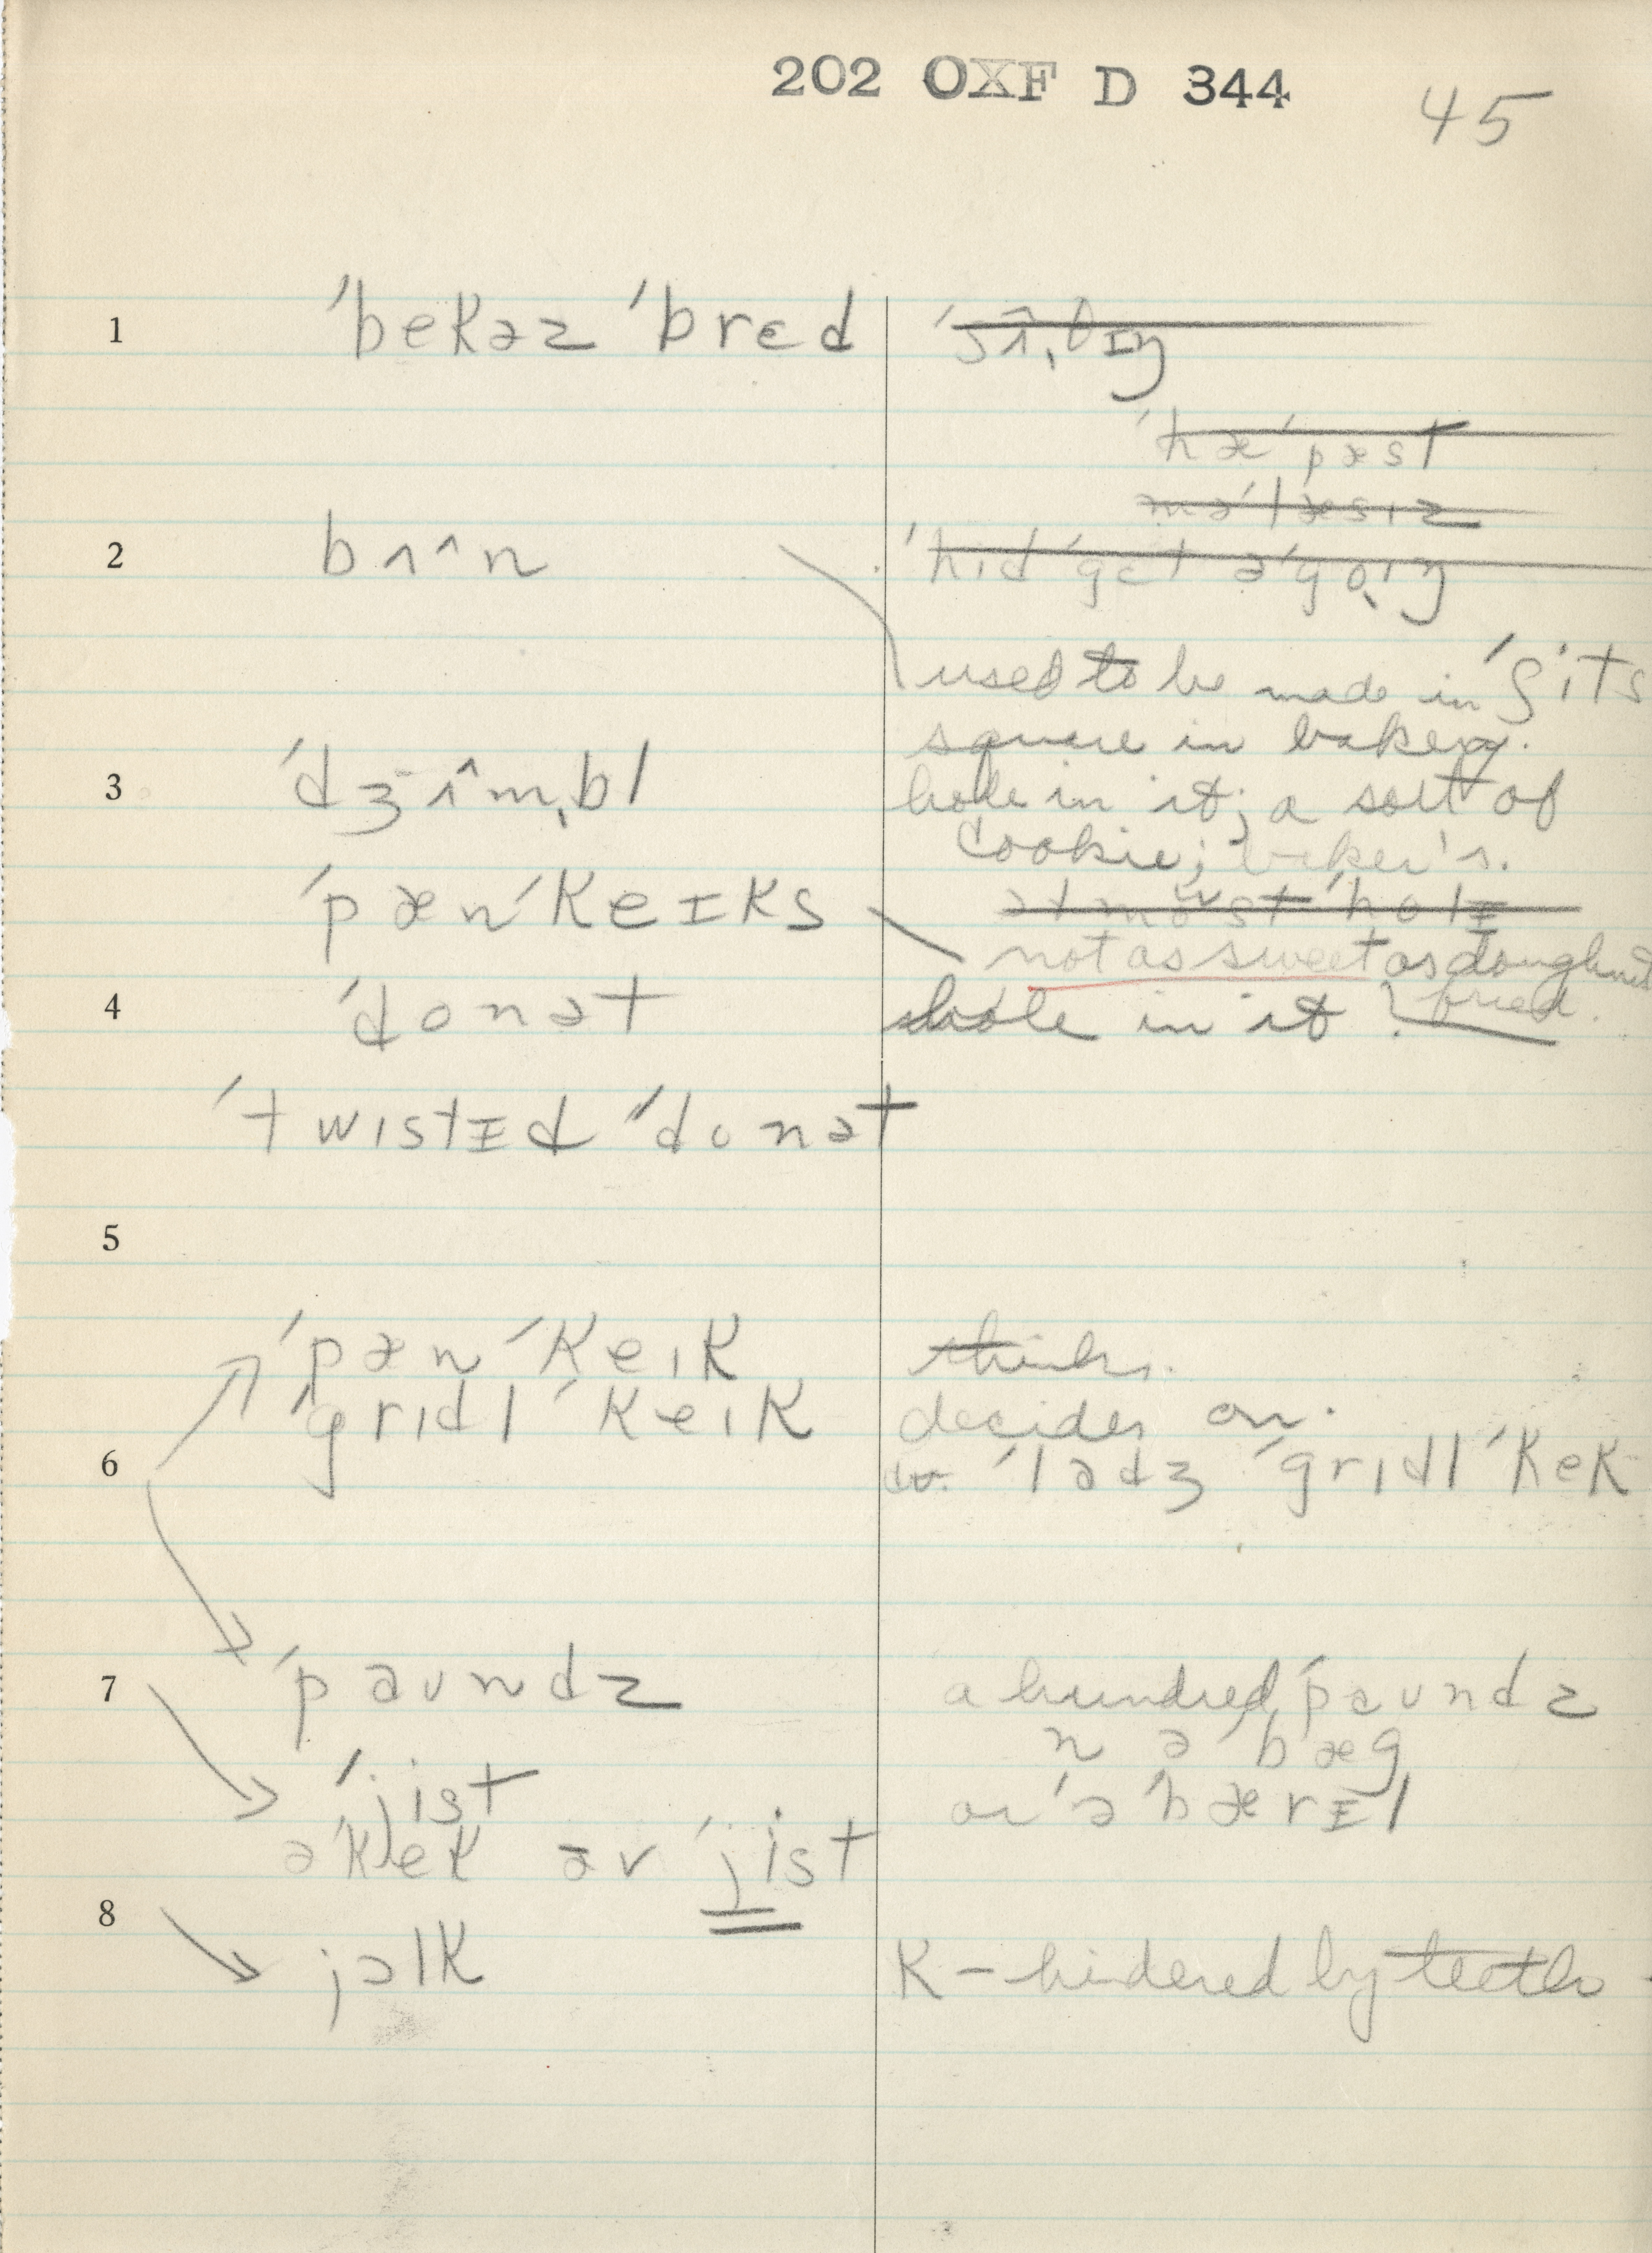 202 OXF D 344
45
1 ˈbekəz ˈbrɛd
ˈhæˈpæst
məˈlæsɪz
2 bʌˆn
used to be made in ˈʃits
square in bakery.
3 ˈdʒʌˆmbl
hole in it; a sort of
cookie; baker's.
ˈpænˈkeɪks
not as sweet as doughnut
4 ˈdonət
hole in it fried.
ˈtwɪstɪd ˈdonət
5
ˈpænˈkeɪk
thinks.
ˈgrɪdlˈkeɪk
decides on.
6
ˈladʒ ˈgrɪdlˈkek
7 ˈpaʊndz
a hundred ˈpaʊndz
n əˈbæg
ˈjist
or əˈbærɪl
əˈkek əv ˈjist
8
jəlk
K – hindered by teeth